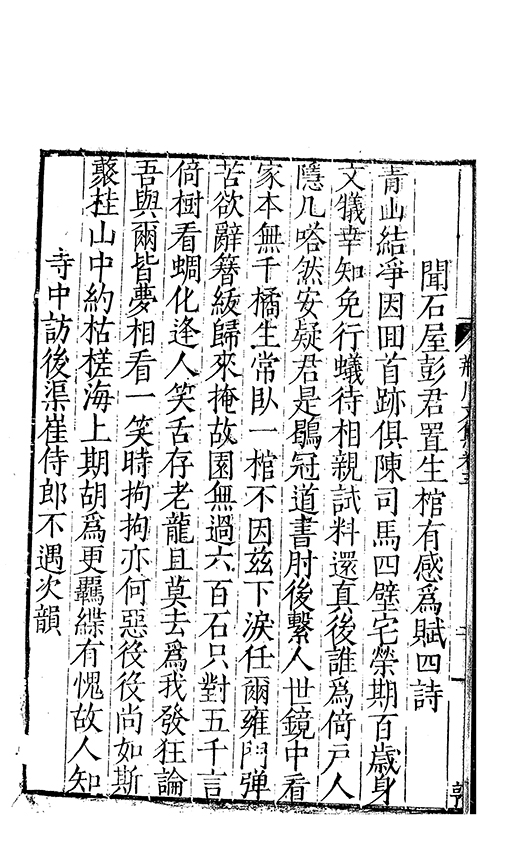 聞石屋彭君置生棺有感爲賦四詩
青山結凈因囬首跡俱陳司馬四壁宅榮期百歲身
文犧幸知免行蟻待相親試料還真後誰爲倚戸人
隱几嗒然安疑君是鶡冠道書肘後繫人世鏡中看
家本無千橘生常臥一棺不因兹下淚任爾雍門彈
苦欲辭簪紱歸來掩故園無過六百石只對五千言
倚樹看蜩化逢人笑舌存老龍且莫去爲我發狂論
吾與爾皆夢相看一笑時拘拘亦何惡役役尚如斯
藂桂山中約枯槎海上期胡爲更羈緤有愧故人知
寺中訪後渠崔侍郎不遇次韻